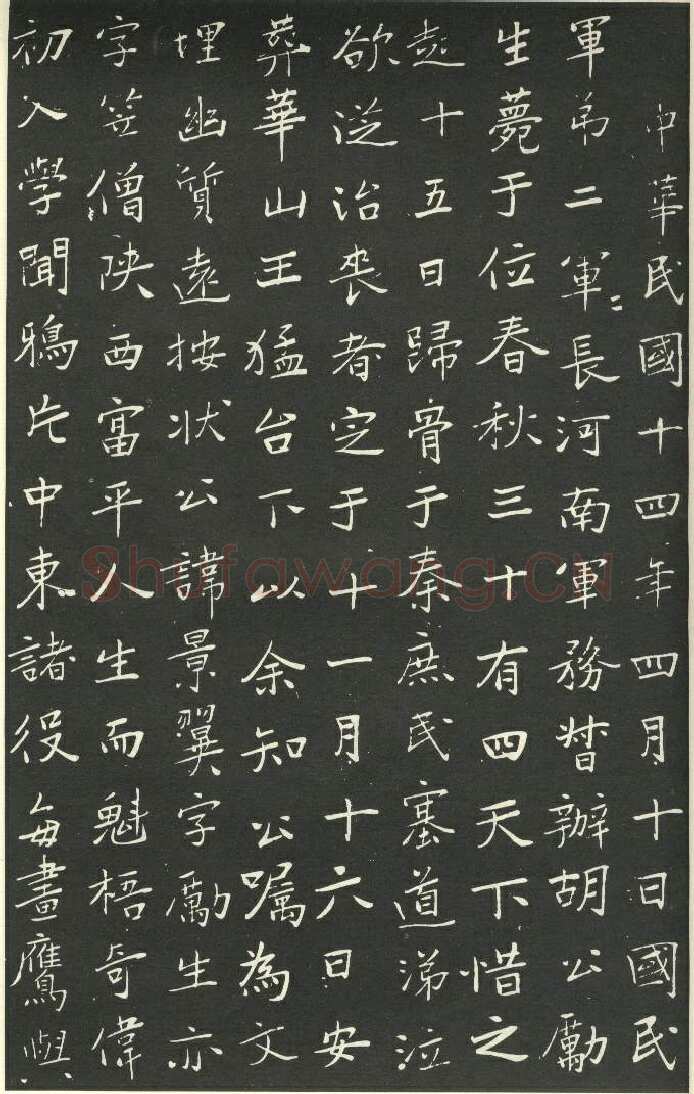 中華民國十四年四月十日國民
軍第二軍軍長河南軍務督辦胡公勵
生薨于位春秋三十有四天下惜之
越十五日歸骨于秦庶民塞道涕泣
欲從治喪者定于十一月十六日安
葬華山王猛台下以余知公囑為文
埋幽質遠按狀公諱景翼字勵生亦
字笠僧陝西富平人生而魁梧奇偉
初入學聞鴉片中東諸役每畫鷹與
Shufawang.CN